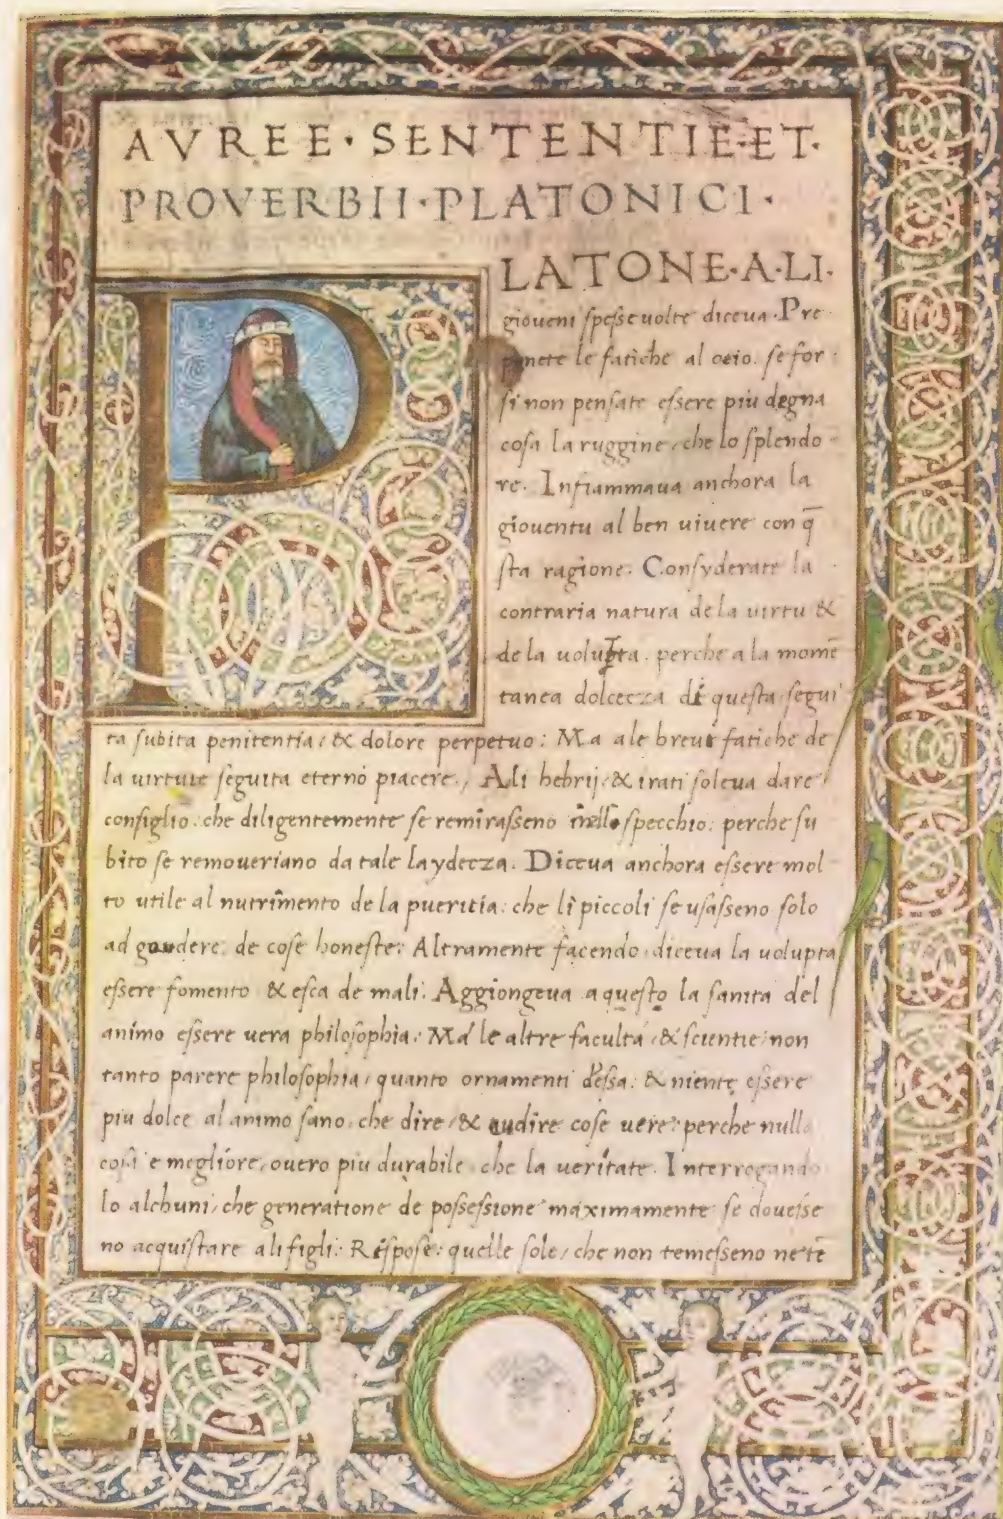 AVREE · SENTENTIE · ET ·
PROVERBII · PLATONICI ·
PLATONE · A · LI ·
gioueni speſse uolte diceua · Pre
ponete le fatiche al ocio. ſe for
ſi non penſate eſsere piu degna
coſa la ruggine, che lo ſplendo
re. Infiammaua anchora la
giouentu al ben uiuere con q̄
ſta ragione. Conſyderate la
contraria natura de la uirtu &
de la uolupta. perche a la momē
tanea dolcecza di queſta ſegui
ta ſubita penitentia, & dolore perpetuo: Ma ale breui fatiche de
la uirtute ſeguita eterno piacere., Ali hebrij, & irati ſoleua dare
conſiglio. che diligentemente ſe remiraſseno nello ſpecchio: perche ſu
bito ſe remoueriano da tale laydecza. Diceua anchora eſsere mol
to utile al nutrimento de la pueritia: che li piccoli ſe uſaſseno ſolo
ad gaudere de coſe honeſte: Altramente facendo, diceua la uolupta
eſsere fomento & eſca de mali. Aggiongeua aqueſto la ſanita del
animo eſsere uera philoſophia: Ma le altre faculta, & ſcientie, non
tanto parere philoſophia, quanto ornamenti deſsa: & niente eſsere
piu dolce al animo ſano, che dire, & audire coſe uere: perche nulla
coſa e megliore, ouero piu durabile, che la ueritate. Interrogando
lo alchuni, che generatione de poſseſsione maximamente ſe doueſse
no acquiſtare ali figli: Riſpoſe: quelle ſole, che non temeſseno ne tē